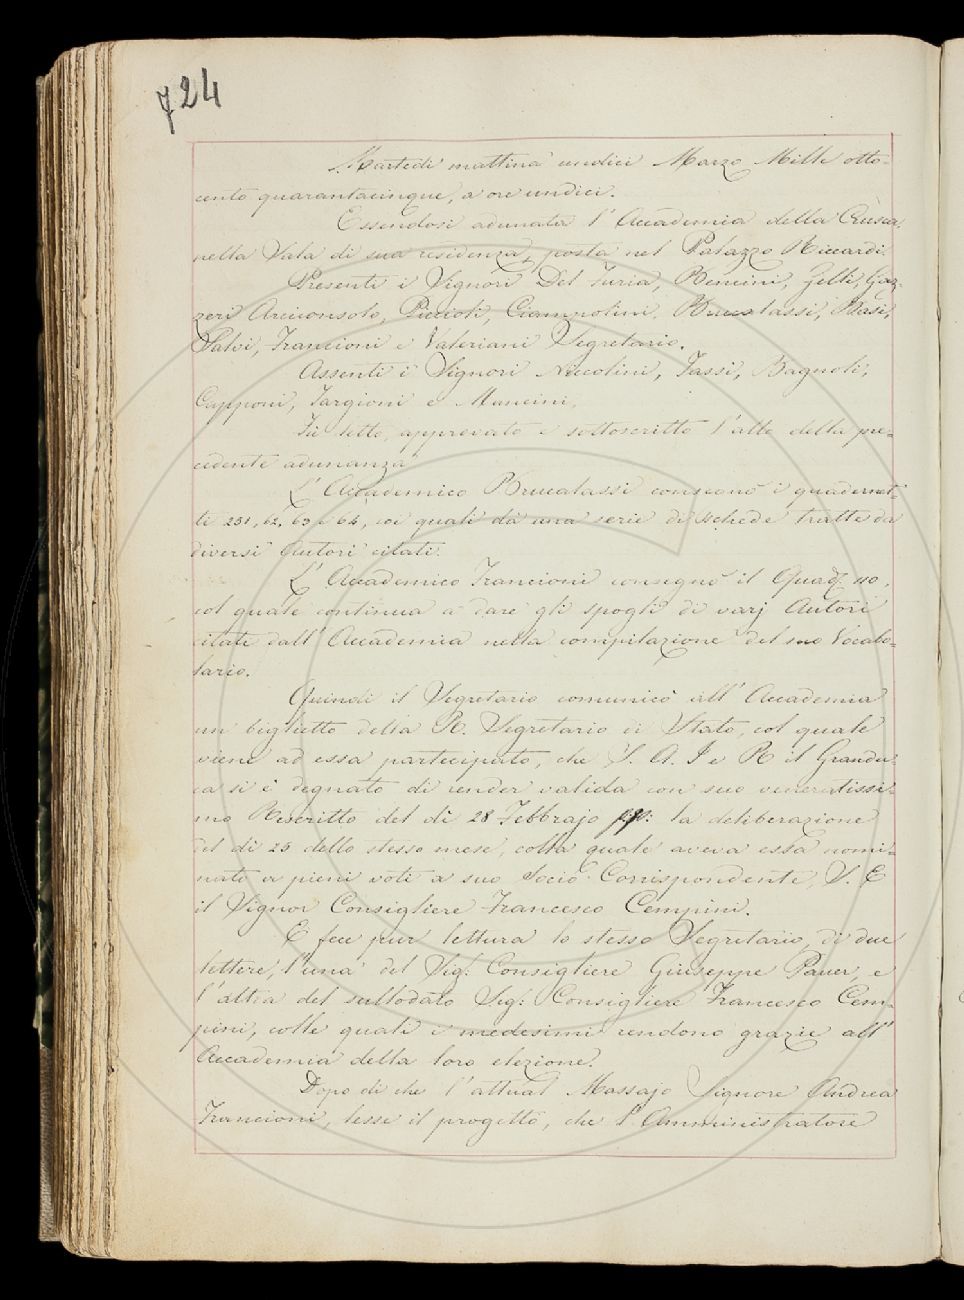 724
Martedì mattina undici Marzo Mille otto=
cento quarantacinque, a ore undici.
Essendosi adunata l'Accademia della Crusca
nella Sala di sua residenza, posta nel Palazzo Riccardi.
Presenti i Signori Del Furia, Bencini, Zelli, Gaz=
zeri Arciconsolo, Piccioli, Ciampolini, Brucalassi, Basi,
Salvi, Francioni e Valeriani Segretario.
Assenti i Signori Niccolini, Tassi, Bagnoli,
Capponi, Targioni e Mancini.
Fù letto, approvato e sottoscritto l'atto della pre=
cedente adunanza.
L'Accademico Brucalassi consegnò i quadernet=
ti 231, 62, 63 e 64, coi quali dà una serie di schede tratte da
diversi Autori citati.
L'Accademico Francioni consegnò il Quad. 110,
col quale continua a dare gli spogli di varj Autori
citati dall'Accademia nella compilazione del suo Vocabo=
lario.
Quindi il Segretario comunicò all'Accademia
un biglietto della R. Segretario di Stato, col quale
viene ad essa partecipato, che S. A. I e R il Grandu=
ca si è degnato di render valida con suo veneratissi=
mo Rescritto del dì 28 Febbrajo pp: la deliberazione
del dì 25 dello stesso mese, colla quale aveva essa nomi=
nato a pieni voti a suo Socio Corrispondente, S. E
il Signor Consigliere Francesco Cempini.
E fece pur lettura lo stesso Segretario, di due
lettere, l'una del Sig: Consigliere Giuseppe Pauer, e
l'altra del sullodato Sig: Consigliere Francesco Cem=
pini, colle quali i medesimi rendono grazie all'
Accademia della loro elezione.
Dopo di che l'attual Massajo Signore Andrea
Francioni, lesse il progetto, che l'Amministratore